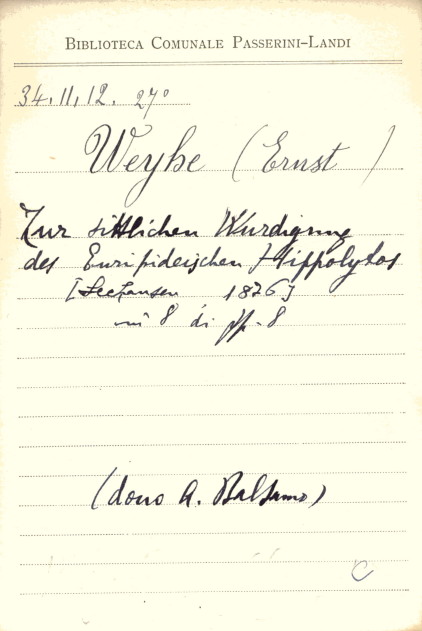 BIBLIOTECA COMUNALE PASSERINI-LANDI
34.11.12. 27°
Weyhe (Ernst)
Zur sittlichen Würdigung
des Euripideischen Hippolytos
[Seehausen 1876]
in 8 di pp. 8
(dono A. Balsamo)
C